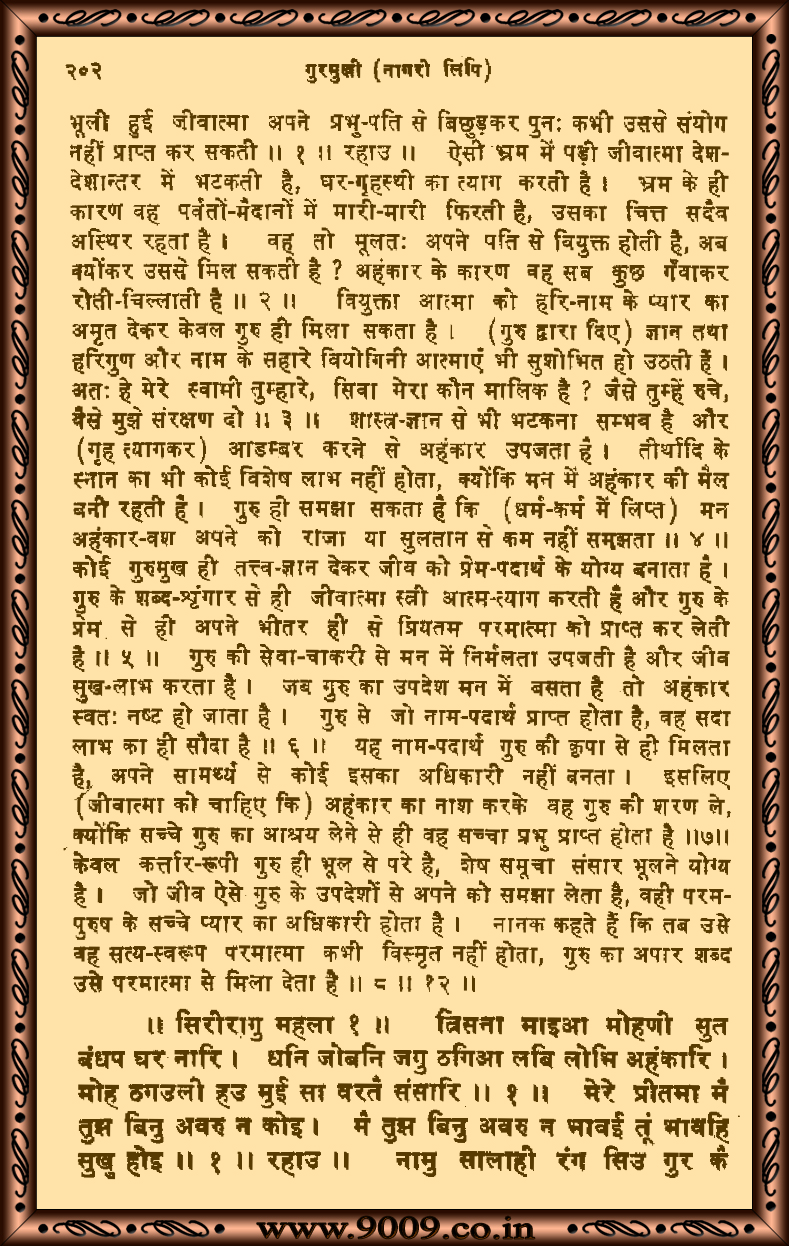 २०२ गुरमुखी (नागरी लिपि)
भूली हुई जीवात्मा अपने प्रभु-पति से बिछुड़कर पुनः कभी उससे संयोग
नहीं प्राप्त कर सकती ॥ १ ॥ रहाउ ॥ ऐसी भ्रम में पड़ी जीवात्मा देश-
देशान्तर में भटकती है, घर-गृहस्थी का त्याग करती है । भ्रम के ही
कारण वह पर्वतों-मैदानों में मारी-मारी फिरती है, उसका चित्त सदैव
अस्थिर रहता है । वह तो मूलतः अपने पति से वियुक्त होती है, अब
क्योंकर उससे मिल सकती है ? अहंकार के कारण वह सब कुछ गँवाकर
रोती-चिल्लाती है ॥ २ ॥ वियुक्ता आत्मा को हरि-नाम के प्यार का
अमृत देकर केवल गुरु ही मिला सकता है । (गुरु द्वारा दिए) ज्ञान तथा
हरिगुण और नाम के सहारे वियोगिनी आत्माएँ भी सुशोभित हो उठती हैं ।
अतः हे मेरे स्वामी तुम्हारे, सिवा मेरा कौन मालिक है ? जैसे तुम्हें रुचे,
वैसे मुझे संरक्षण दो ॥ ३ ॥ शास्त्र-ज्ञान से भी भटकना सम्भव है और
(गृह त्यागकर) आडम्बर करने से अहंकार उपजता है । तीर्थादि के
स्नान का भी कोई विशेष लाभ नहीं होता, क्योंकि मन में अहंकार की मैल
बनी रहती है । गुरु ही समझा सकता है कि (धर्म-कर्म में लिप्त) मन
अहंकार-वश अपने को राजा या सुलतान से कम नहीं समझता ॥ ४ ॥
कोई गुरुमुख ही तत्त्व-ज्ञान देकर जीव को प्रेम-पदार्थ के योग्य बनाता है ।
गुरु के शब्द-शृंगार से ही जीवात्मा स्त्री आत्म-त्याग करती है और गुरु के
प्रेम से ही अपने भीतर ही से प्रियतम परमात्मा को प्राप्त कर लेती
है ॥ ५ ॥ गुरु की सेवा-चाकरी से मन में निर्मलता उपजती है और जीव
सुख-लाभ करता है । जब गुरु का उपदेश मन में बसता है तो अहंकार
स्वतः नष्ट हो जाता है । गुरु से जो नाम-पदार्थ प्राप्त होता है, वह सदा
लाभ का ही सौदा है ॥ ६ ॥ यह नाम-पदार्थ गुरु की कृपा से ही मिलता
है, अपने सामर्थ्य से कोई इसका अधिकारी नहीं बनता । इसलिए
(जीवात्मा को चाहिए कि) अहंकार का नाश करके वह गुरु की शरण ले,
क्योंकि सच्चे गुरु का आश्रय लेने से ही वह सच्चा प्रभु प्राप्त होता है ॥७॥
केवल कर्त्तार-रूपी गुरु ही भूल से परे है, शेष समूचा संसार भूलने योग्य
है । जो जीव ऐसे गुरु के उपदेशों से अपने को समझा लेता है, वही परम-
पुरुष के सच्चे प्यार का अधिकारी होता है । नानक कहते हैं कि तब उसे
वह सत्य-स्वरूप परमात्मा कभी विस्मृत नहीं होता, गुरु का अपार शब्द
उसे परमात्मा से मिला देता है ॥ ८ ॥ १२ ॥
॥ सिरीरागु महला १ ॥ त्रिसना माइआ मोहणी सुत
बंधप घर नारि । धनि जोबनि जगु ठगिआ लबि लोभि अहंकारि ।
मोह ठगउली हउ मुई सा वरतै संसारि ॥ १ ॥ मेरे प्रीतमा मै
तुझ बिनु अवरु न कोइ । मै तुझ बिनु अवरु न भावई तूं भावहि
सुखु होइ ॥ १ ॥ रहाउ ॥ नामु सालाही रंग सिउ गुर कै
www.9009.co.in